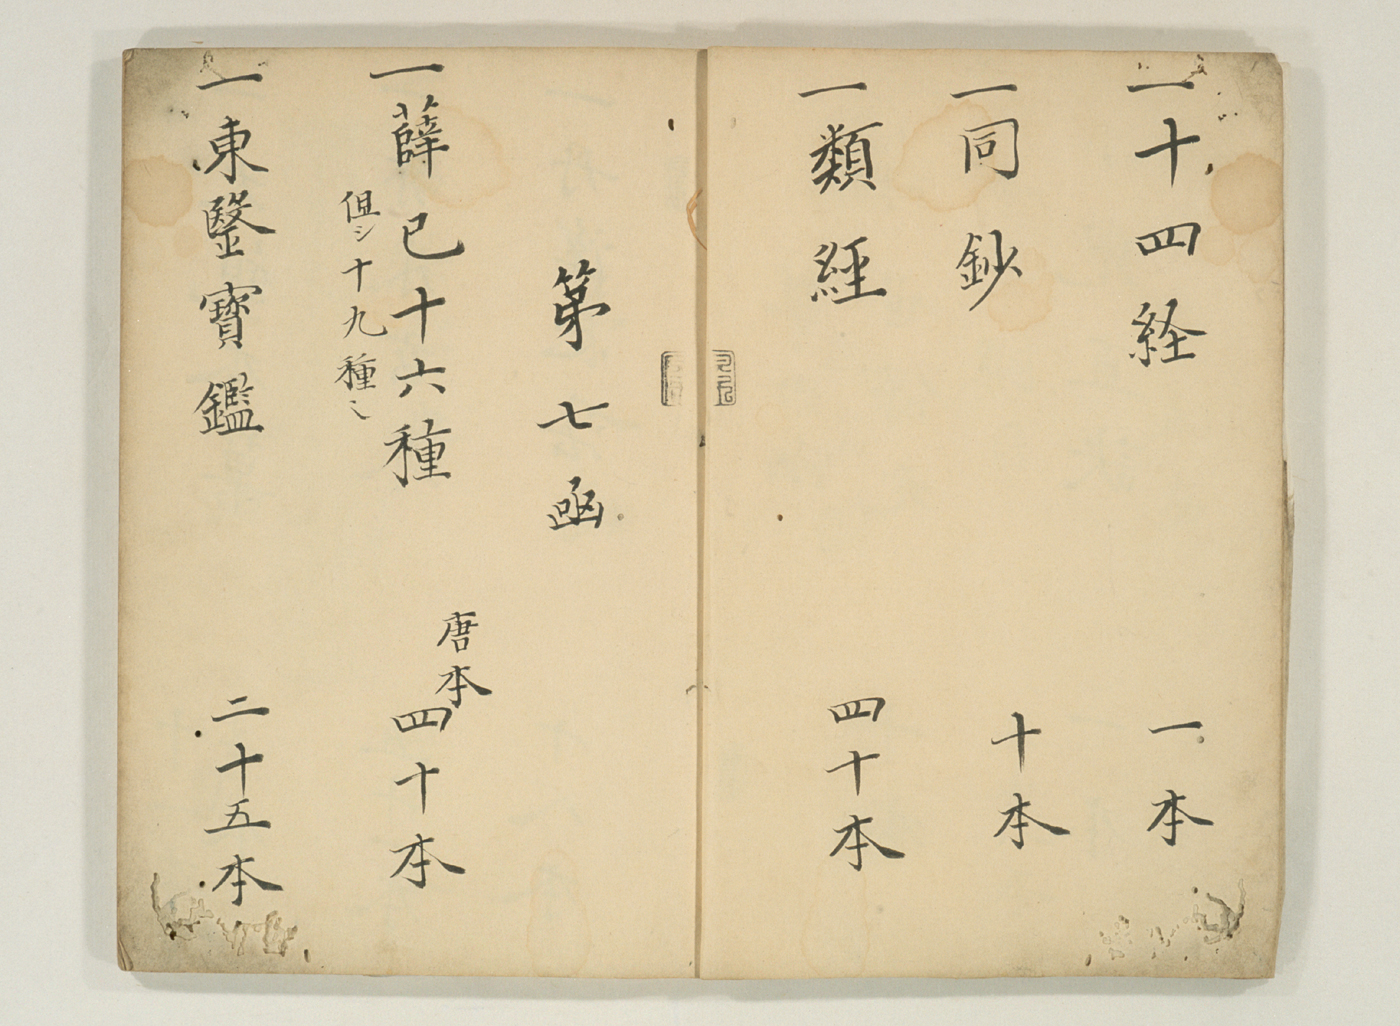 一十四経 一本
一同鈔 十本
一類經 四十本
第七凾
一薛已十六種 唐本四十本
但シ十九種
一東醫寳鑑 二十五本